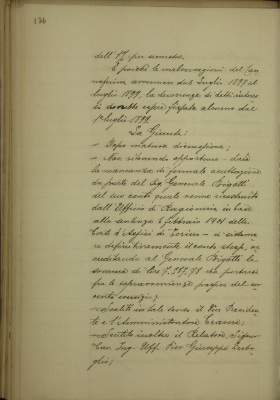 dell' 1% per semestre.
E poichè le malversazioni del
avvennero dal Luglio 1897 al
luglio 1899, la decorrenza di detti interes-
si dovrebbe essere fissata almeno dal
1° luglio 1899.
La Giunta:
- Dopo matura discussione;
- Non ritenendo opportuno - data
la mancanza di formale accettazione
da parte del Sig. Generale Bigotti
del suo conto quale venne
dall' Ufficio di Ragioneria in base
alla sentenza 6 febbraio 1901 della
Corte d'Assisi di Torino - di
re definitivamente il conto stesso, ac-
creditando al Generale Bigotti la
somma di L. 7.597,78 da portarsi
fra le sopravvenienze passive del
cente esercizio;
in tale senso il Vice Presiden-
te e l'Amministratore
- Sentito inoltre il Relatore, Signor
Cav. Ing. Uff. Pier Giuseppe